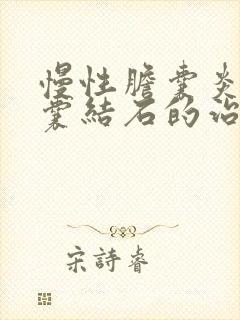 慢性膽囊炎
囊結石的治
宋詩睿